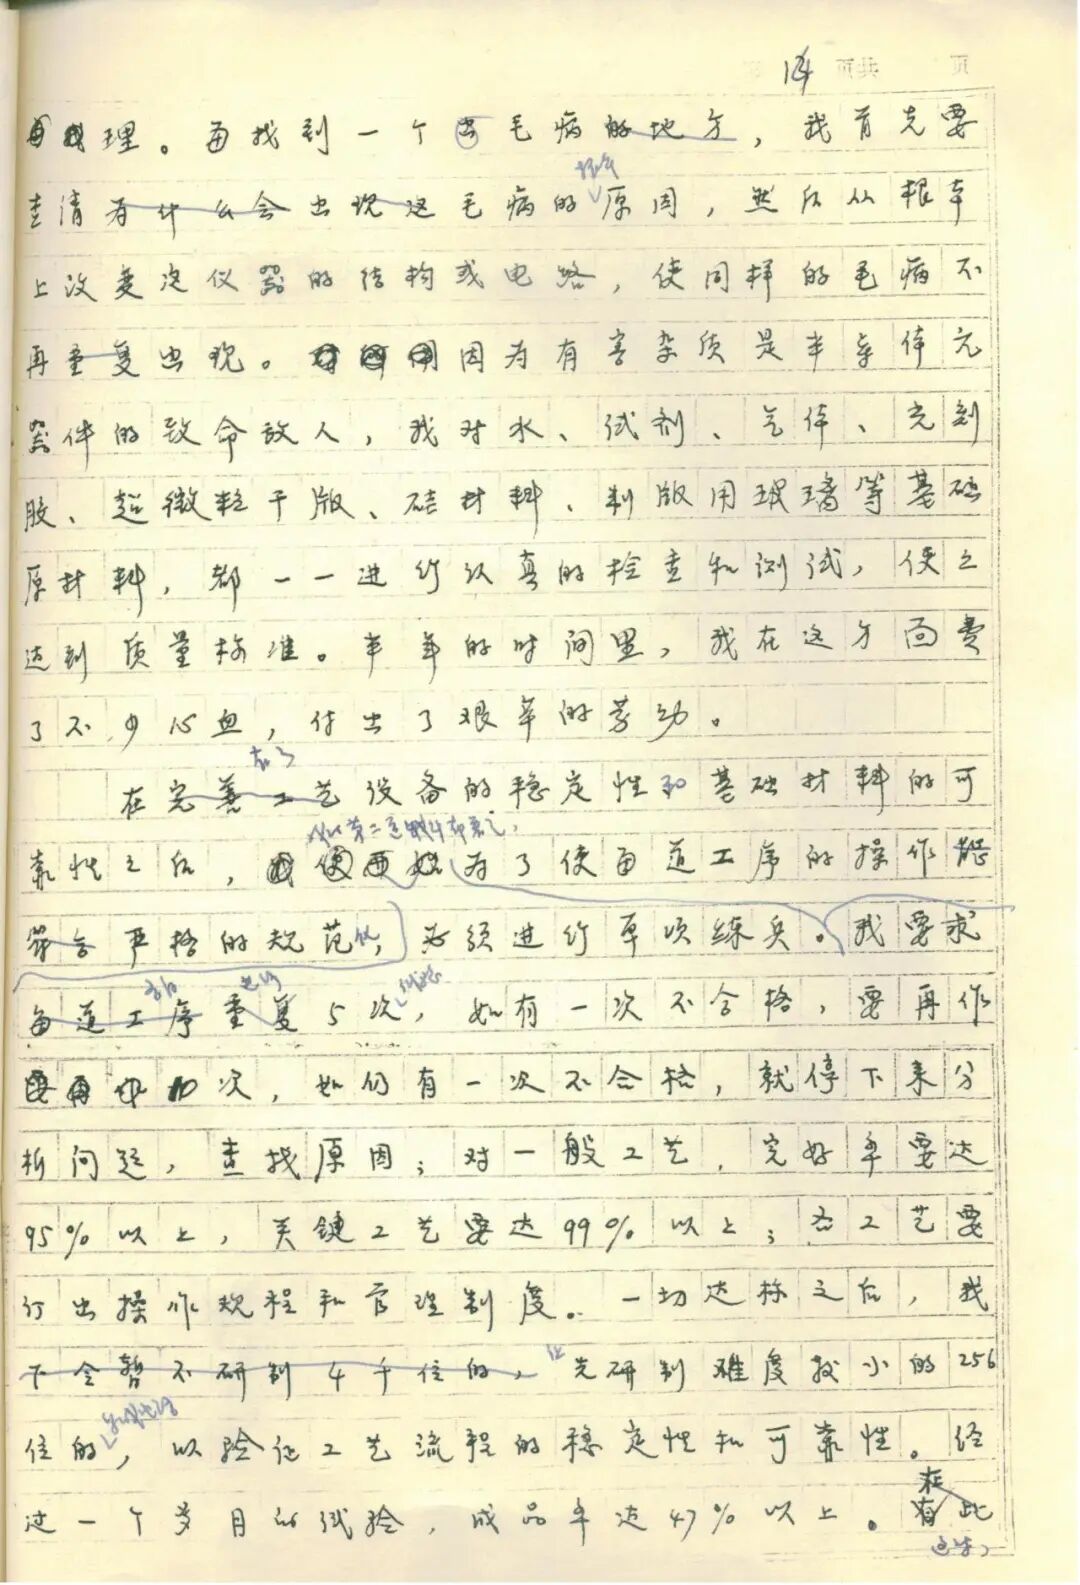 14
理。每找到一个出毛病的地方，我首先要
查清为什么会出现这毛病的原因，然后从根本
上改变这仪器的结构或电路，使同样的毛病不
再重复出现。因为有害杂质是半导体元
器件的致命敌人，我对水、试剂、气体、光刻
胶、超微粒干版、硅材料、制版用玻璃等基础
原材料，都一一进行认真的检查和测试，使之
达到质量标准。半年的时间里，我在这方面费
了不少心血，付出了艰辛的劳动。
在完善工艺设备的稳定性和基础材料的可
靠性之后，为了使每道工序的操作能
符合严格的规范化，必须进行单项练兵。我要求
每道工序重复5次，如有一次不合格，要再作
10次，如仍有一次不合格，就停下来分
析问题，查找原因；对一般工艺，完好率要达
95%以上，关键工艺要达99%以上；各工艺要
订出操作规程和管理制度。一切达标之后，我
下令暂不研制4千位的，先研制难度较小的256
位的，以验证工艺流程的稳定性和可靠性。经
过一个多月的试验，成品率达47%以上。在此